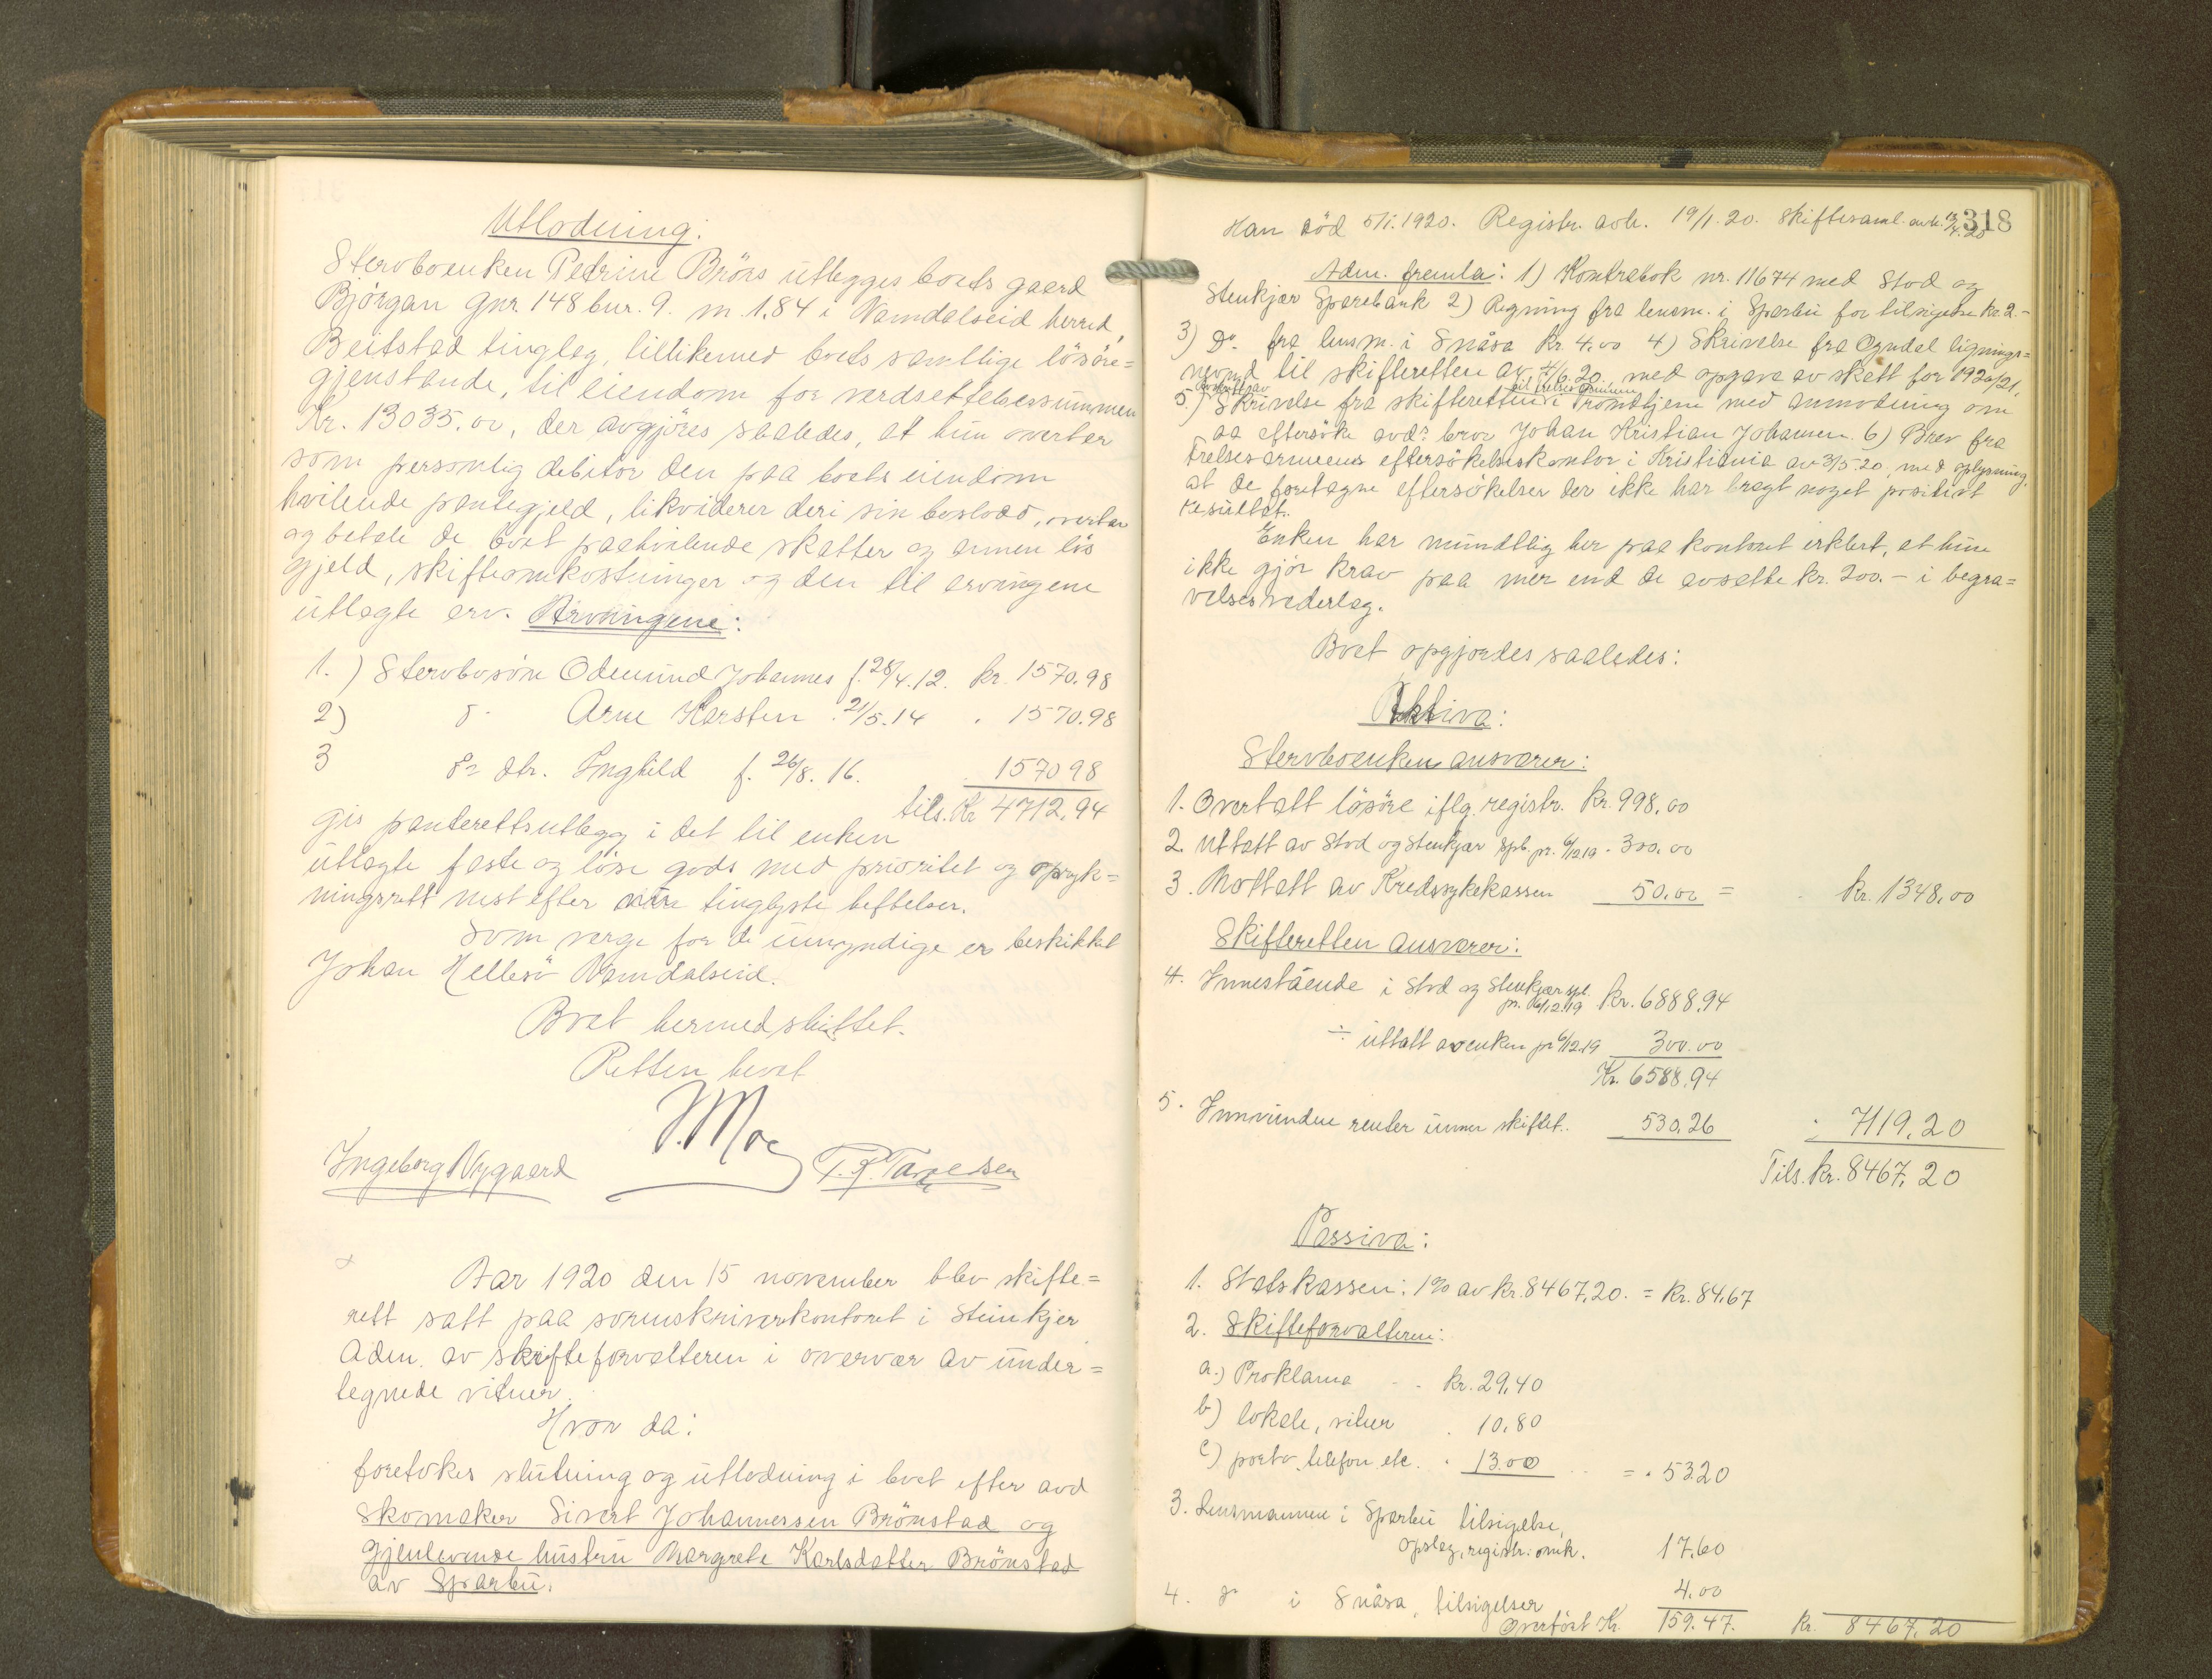 Utlodning:
Stervboenken Petrine Brörs utlegges boets gaard
Björgan gnr. 148 bnr. 9. m. 1.84 i Namdalseid herred,
Beitstad tinglag, tillikemed boets samtlige lösöre=
gjenstande, til eiendom for verdsettelsessummen
Kr. 13035.00, der avgjöres saaledes, at hun overtar
som personlig debitor den paa boets eiendom
hvilende pantegjeld, likviderer deri sin boslodd, overtar
og betale de boet paahvilende skatter og annen lös
gjeld, skifteomkostninger og den til arvingene
utlagte arv. Arvingene:
1.) Stervbosön Odmund Johannes f. 28/4.12. kr. 1570.98
2) do Arne Karsten 21/5.14 . 1570.98
3 do dtr. Inghild f. 26/8. 16. 157098
tils. Kr 4712.94
gis panterettsutlegg i det til enken
utlagte faste og löse gods med prioritet og opryk=
ningsrett nest efter nu tinglyste heftelser.
Som verge for de umyndige er beskikket
Johan Hellesö Namdalseid.
Boet hermed sluttet.
Retten hevet
J. Moe
Ingeborg Nygaard T. K. Targedsen
Aar 1920 den 15 november blev skifte=
rett satt paa sorenskriverkontoret i Steinkjer
Adm. av skifteforvalteren i overvær av under=
tegnede vitner.
Hvor da:
foretokes slutning og utlodning i boet efter avd
skomaker Sivert Johannessen Brönstad og
gjenlevende hustru Margrete Karlsdatter Brönstad
av Sparbu.
318
Han död 5/1.1920. Registr. avh. 19/1.20. Skiftesaml. avh. 12/4.20
Adm. fremla: 1) Kontrabok nr. 11674 med Stod og
Stenkjær Sparebank 2) Regning fra lensm. i Sparbu for tilsigelse kr. 2.-
3) Do. fra lensm. i Snåsa Kr. 4.00 4) Skrivelse fra Ogndal lignings=
nevnd til skifteretten av 4/6.20 med opgave av skatt for 1920/21.
5.) Avskrift av Skrivelse fra skifteretten til Frelses armeen i Trondhjem med anmodning om
aa eftersöke avds bror Johan Kristian Johansen. 6) Brev fra
Frelsesarmeens eftersökelseskontor i Kristiania av 3/5.20. med oplysning
at de foretagne eftersökelser der ikke har bragt noget positivt
resultat.
Enken har mundtlig her paa kontoret erklært, at hun
ikke gjör krav paa mer end de avsatte kr. 200.- i begra=
velsesvederlag.
Boet opgjordes saaledes:
Aktiva:
Stervboenken ansvarer:
1. Overtatt lösöre iflg. registr. Kr. 998.00
2. Uttatt av Stod og Stenkjær spb. pr. 6/12 19 . 300.00
3. Mottatt av Kredssykekassen 50.00 = kr. 1348.00
Skifteretten ansvarer:
4. Innestående i Stod og Stenkjær spb.
pr. 6/12.19 Kr. 6888.94
÷ uttatt av enken pr 6/12.19 300.00
Kr. 6588.94
5. Innvundne renter under skiftet. 530.26 7119.20
Tils. kr. 8467.20
Passiva:
1. Statskassen: 1% av kr. 8467.20. = kr. 84.67
2. Skifteforvalteren:
a.) Proklama kr. 29.40
b) lokale, vitner . 10.80
c) porto, telefon etc. . 13.00 = . 53.20
3. Lensmannen i Sparbu tilsigelse,
opslag, registr. omk. 17.60
4. do i Snåsa, tilsigelser 4.00
Overfört Kr. 159.47. Kr. 8467.20